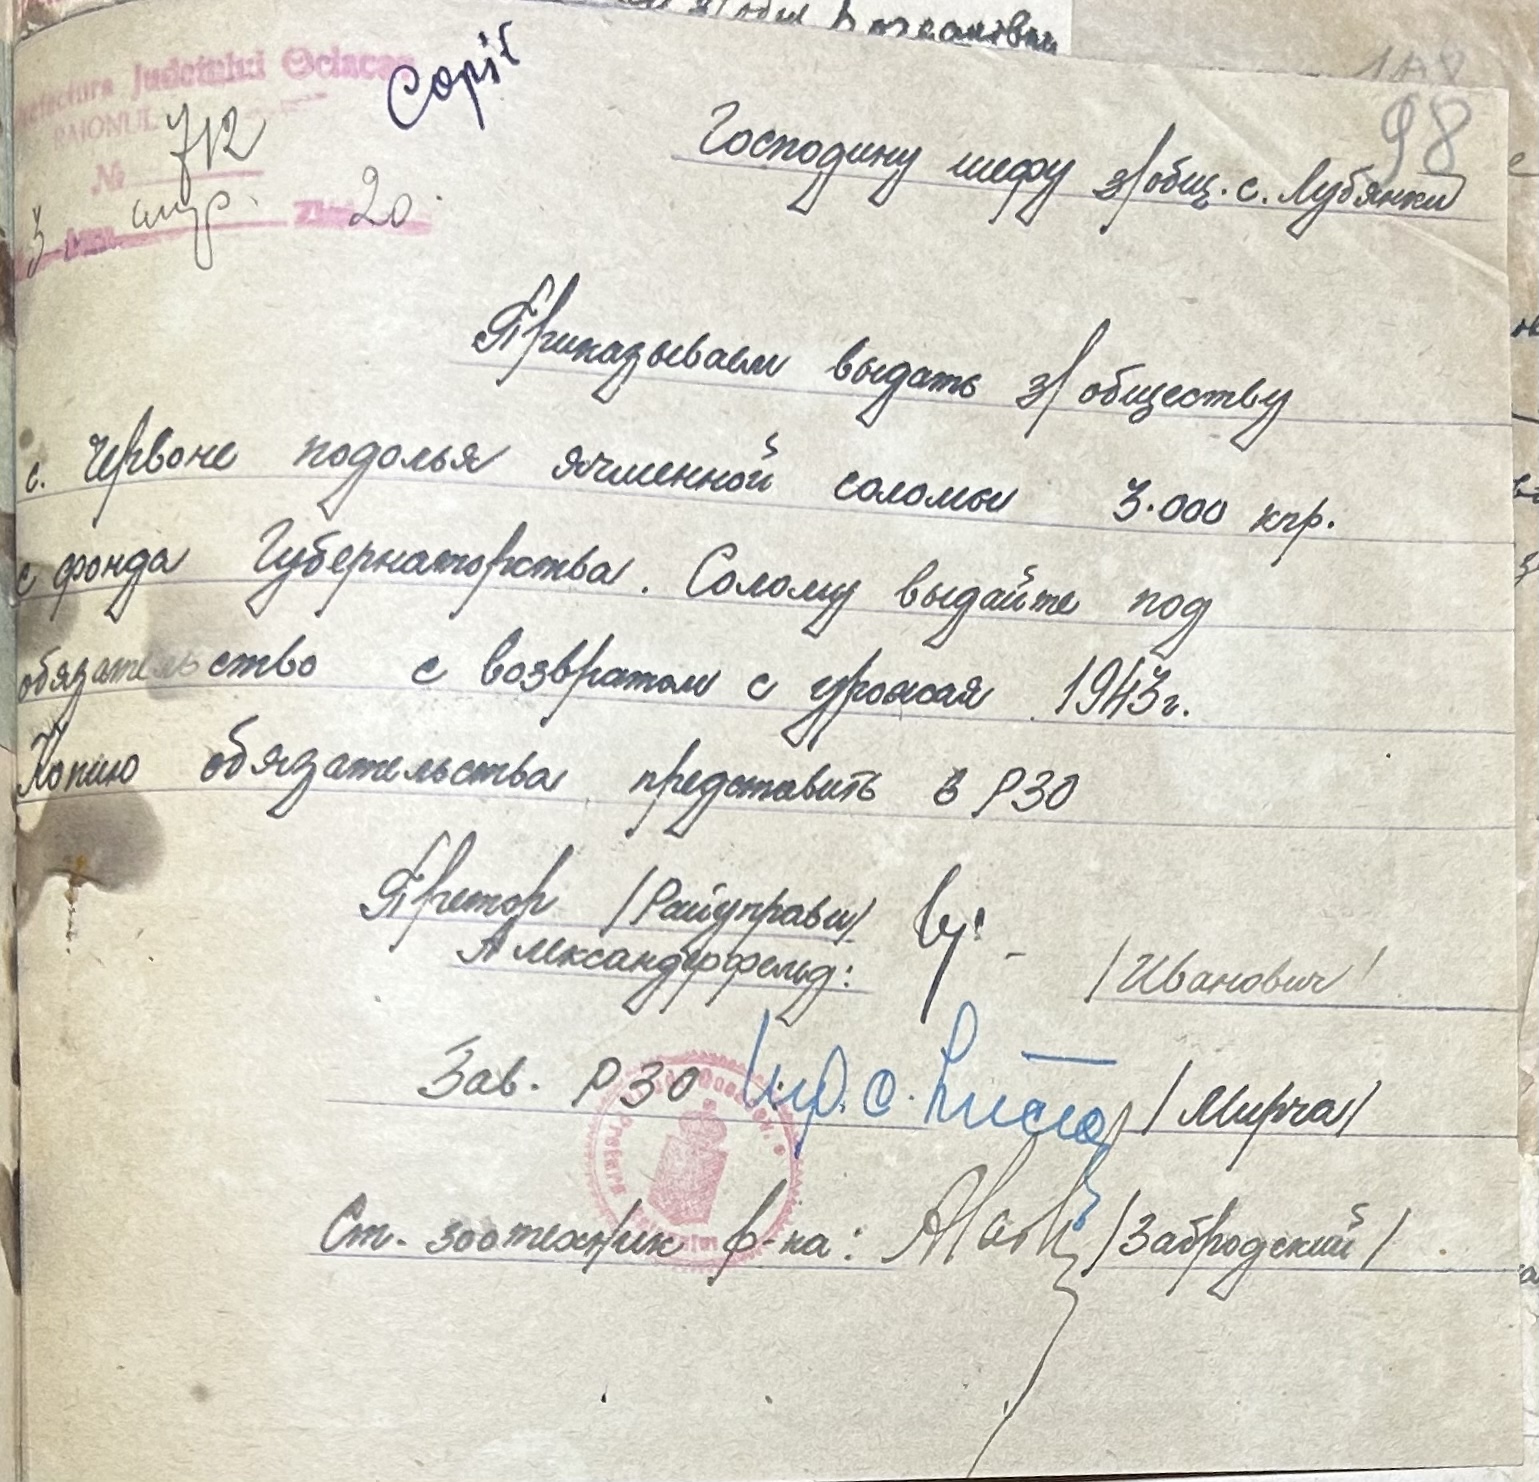 Prefectura Judetului Oceacov
Copil
RAIONUL
98
№ 712
Господину шефу з/общ. с. Лубянки
3 апр. Ziua 20.
Приказываем выдать з/обществу
с. Червоне подолья ячменной соломы 3.000 кгр.
с фонда Губернаторства. Солому выдайте под
обязательство с возвратом с урожая 1943г.
Копию обязательства представить в РЗО
Претор /Райуправы/
Александерфельд: /Иванович/
Зав. РЗО /Мирча/
Ст. зоотехник р-на: /Забродский/